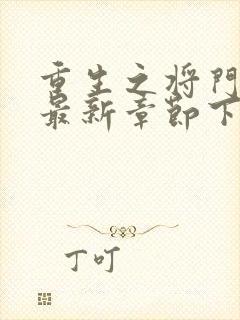 重生之将門
最新章節下
丁叮